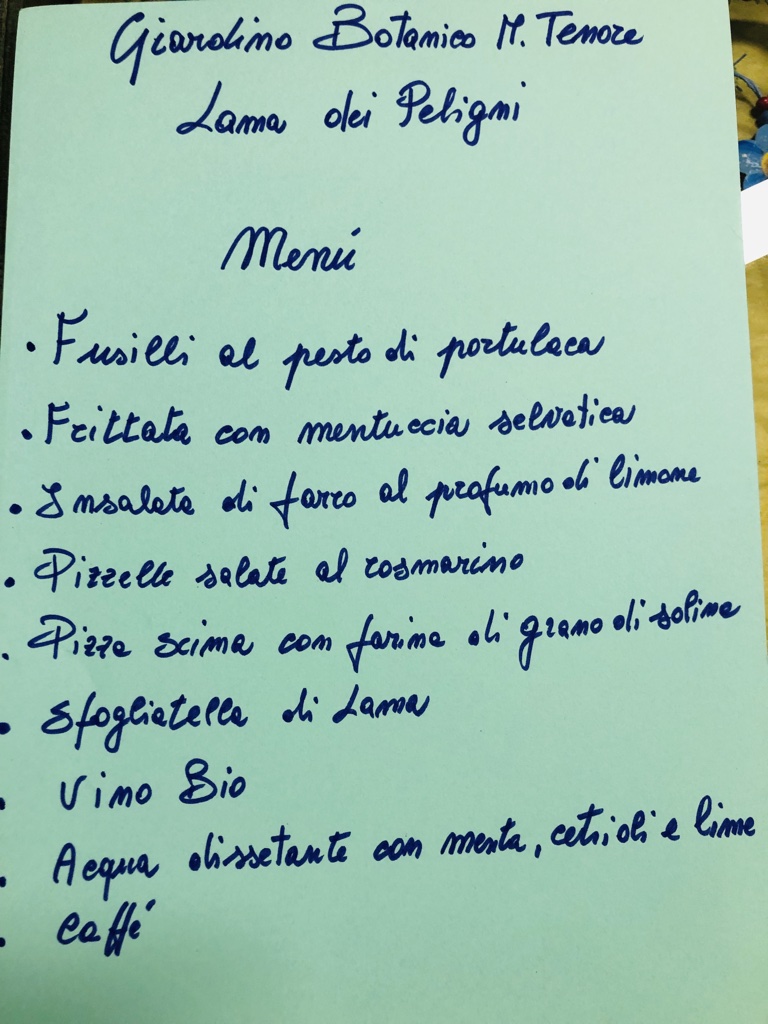 Giardino Botanico M. Tenore
Lama dei Peligni
Menú
• Fusilli al pesto di portulaca
• Frittata con mentuccia selvatica
• Insalata di farro al profumo di limone
• Pizzelle salate al rosmarino
• Pizza scima con farina di grano di solina
• Sfogliatella di Lama
• Vino Bio
• Acqua dissetante con menta, cetrioli e lime
• Caffé